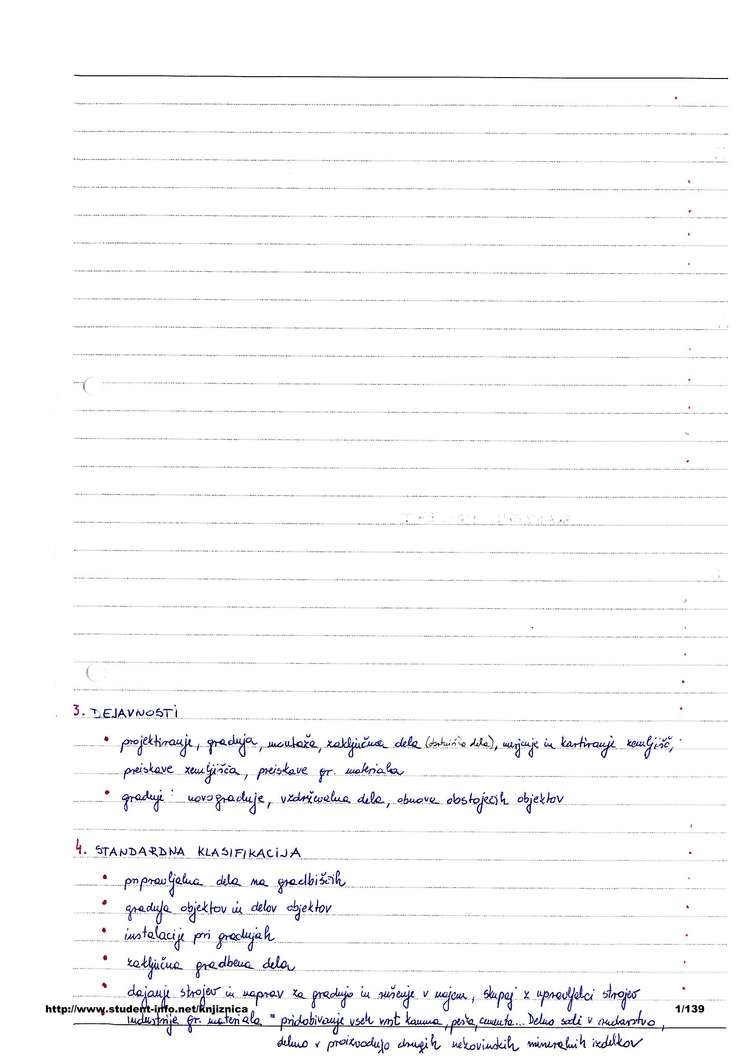 3. DEJAVNOSTI
• projektiranje, gradnja, montaža, zaključna dela (obrtniška dela), merjenje in kartiranje zemljišč,
preiskave zemljišča, preiskave gr. materiala
• gradnje: novogradnje, vzdrževalna dela, obnova obstoječih objektov
4. STANDARDNA KLASIFIKACIJA
• pripravljalna dela na gradbiščih
• gradnja objektov in delov objektov
• instalacije pri gradnjah
• zaključna gradbena dela
• dajanje strojev in naprav za gradnjo in rušenje v najem, skupaj z upravljalci strojev
http://www.student-info.net/knjiznica 1/139
industrije gr. materiala " pridobivanje vseh vrst kamna, peska, cementa... Delno sodi v rudarstvo,
delno v proizvodnjo drugih nekovinskih mineralnih izdelkov